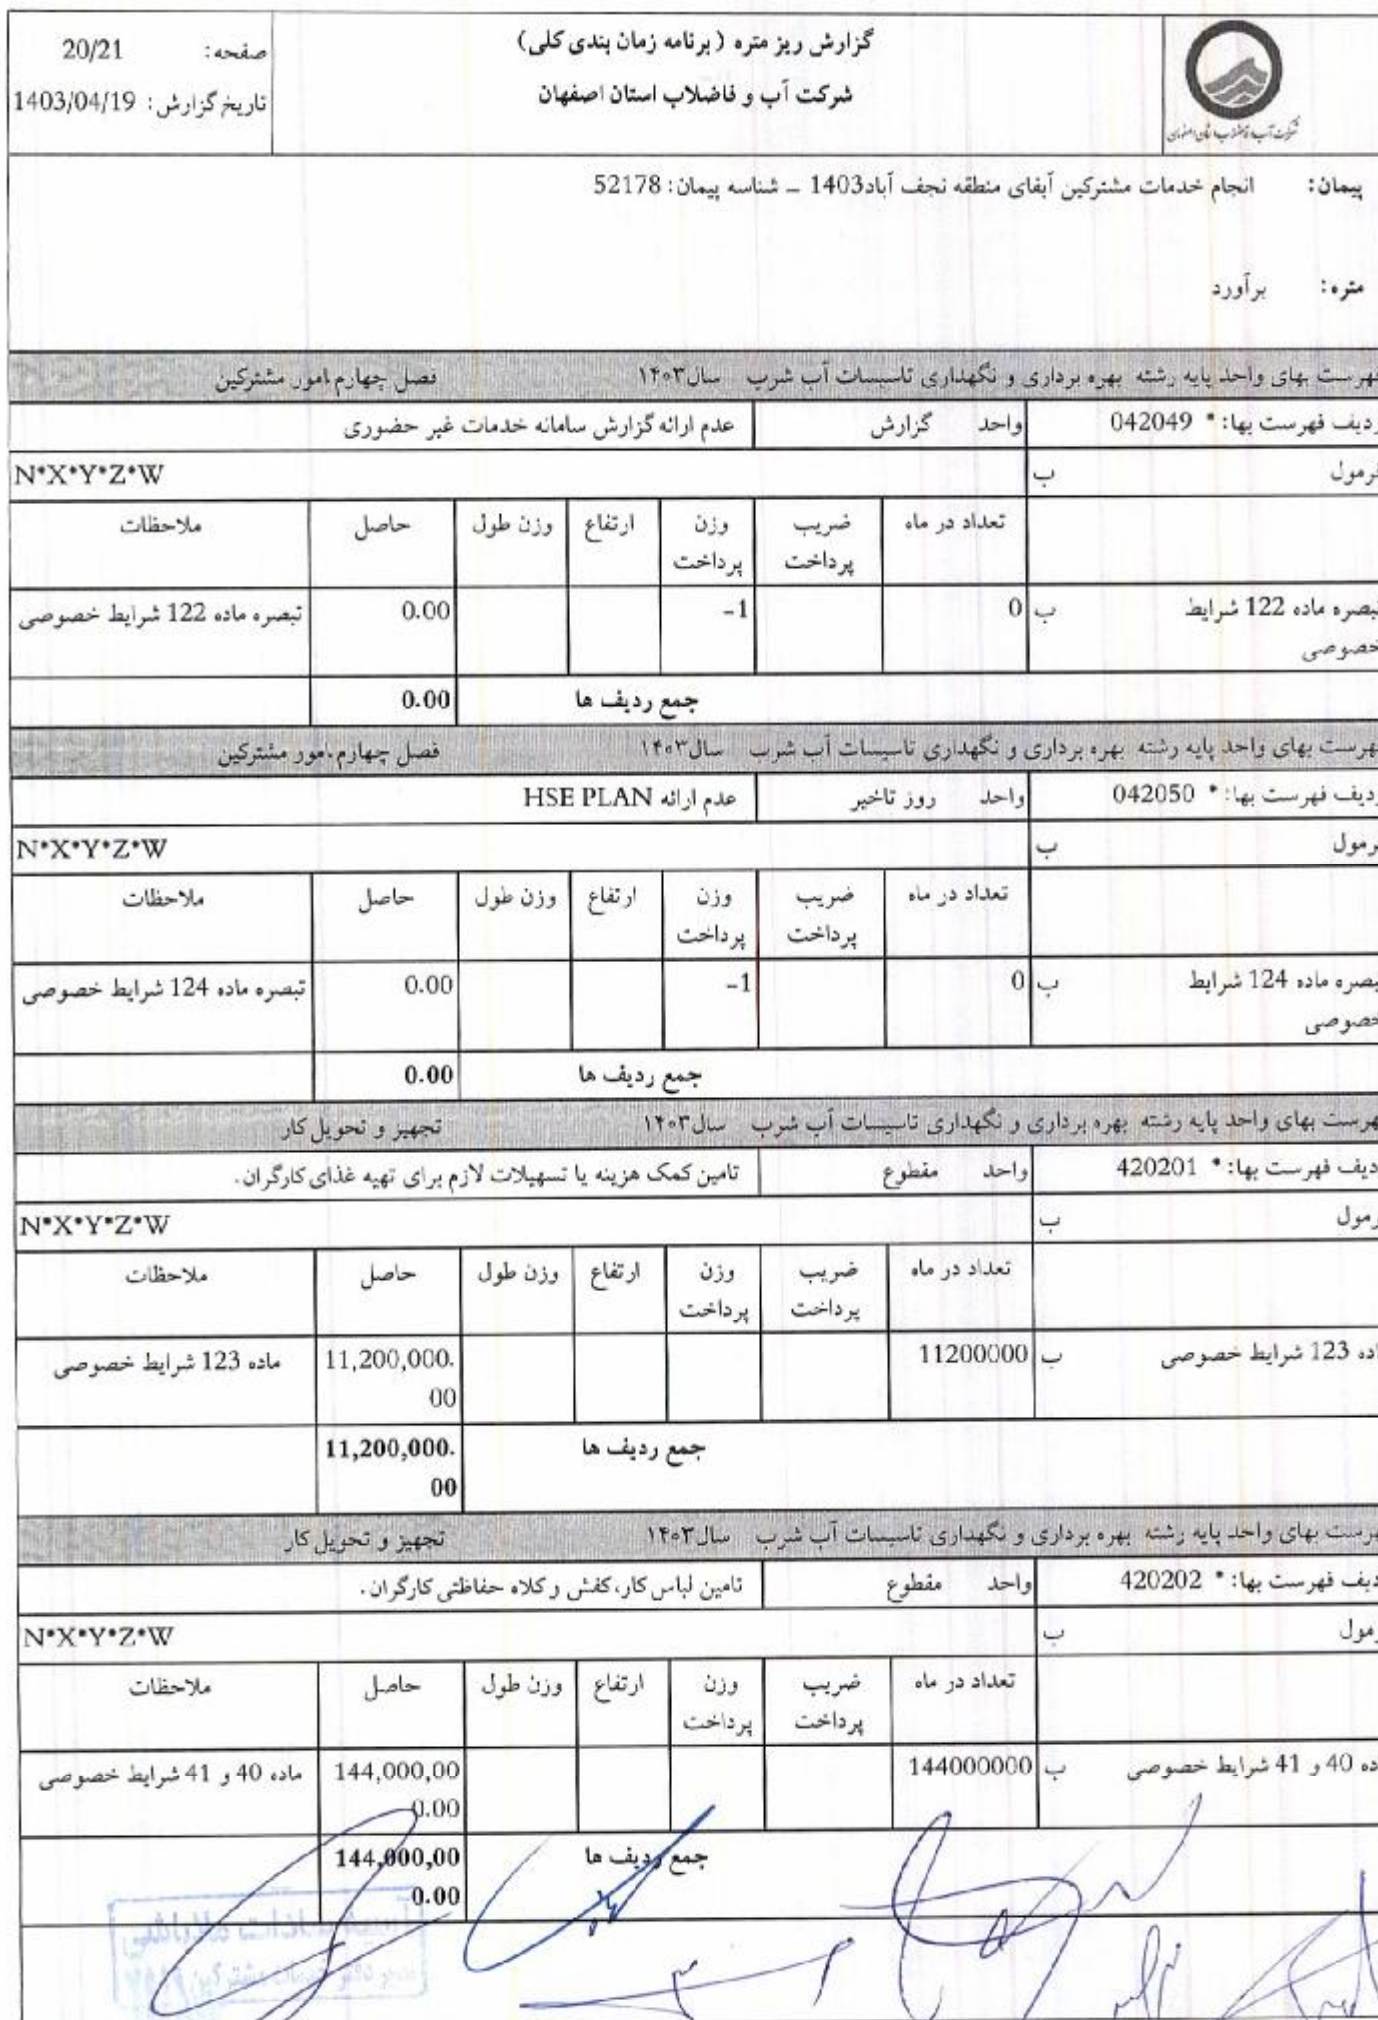 گزارش ریز متره ( برنامه زمان بندی کلی)
شرکت آب و فاضلاب استان اصفهان
صفحه: 20/21
تاریخ گزارش: 1403/04/19
پیمان: انجام خدمات مشترکین آبفای منطقه نجف آباد1403 - شناسه پیمان: 52178
متره: برآورد
فهرست بهای واحد پایه رشته بهره برداری و نگهداری تاسیسات آب شرب سال۱۴۰۳ فصل چهارم.امور مشترکین
ردیف فهرست بها: * 042049 واحد گزارش عدم ارائه گزارش سامانه خدمات غیر حضوری
فرمول ب N*X*Y*Z*W
تعداد در ماه ضریب پرداخت وزن پرداخت ارتفاع وزن طول حاصل ملاحظات
تبصره ماده 122 شرایط خصوصی ب 0 -1 0.00 تبصره ماده 122 شرایط خصوصی
جمع ردیف ها 0.00
فهرست بهای واحد پایه رشته بهره برداری و نگهداری تاسیسات آب شرب سال۱۴۰۳ فصل چهارم.امور مشترکین
ردیف فهرست بها: * 042050 واحد روز تاخیر عدم ارائه HSE PLAN
فرمول ب N*X*Y*Z*W
تعداد در ماه ضریب پرداخت وزن پرداخت ارتفاع وزن طول حاصل ملاحظات
تبصره ماده 124 شرایط خصوصی ب 0 -1 0.00 تبصره ماده 124 شرایط خصوصی
جمع ردیف ها 0.00
هرست بهای واحد پایه رشته بهره برداری و نگهداری تاسیسات آب شرب سال۱۴۰۳ تجهیز و تحویل کار
دیف فهرست بها: * 420201 واحد مقطوع تامین کمک هزینه یا تسهیلات لازم برای تهیه غذای کارگران.
رمول ب N*X*Y*Z*W
تعداد در ماه ضریب پرداخت وزن پرداخت ارتفاع وزن طول حاصل ملاحظات
اده 123 شرایط خصوصی ب 11200000 11,200,000.00 ماده 123 شرایط خصوصی
جمع ردیف ها 11,200,000.00
هرست بهای واحد پایه رشته بهره برداری و نگهداری تاسیسات آب شرب سال۱۴۰۳ تجهیز و تحویل کار
دیف فهرست بها: * 420202 واحد مقطوع تامین لباس کار،کفش و کلاه حفاظتی کارگران.
رمول ب N*X*Y*Z*W
تعداد در ماه ضریب پرداخت وزن پرداخت ارتفاع وزن طول حاصل ملاحظات
ده 40 و 41 شرایط خصوصی ب 144000000 144,000,000.00 ماده 40 و 41 شرایط خصوصی
جمع ردیف ها 144,000,000.00